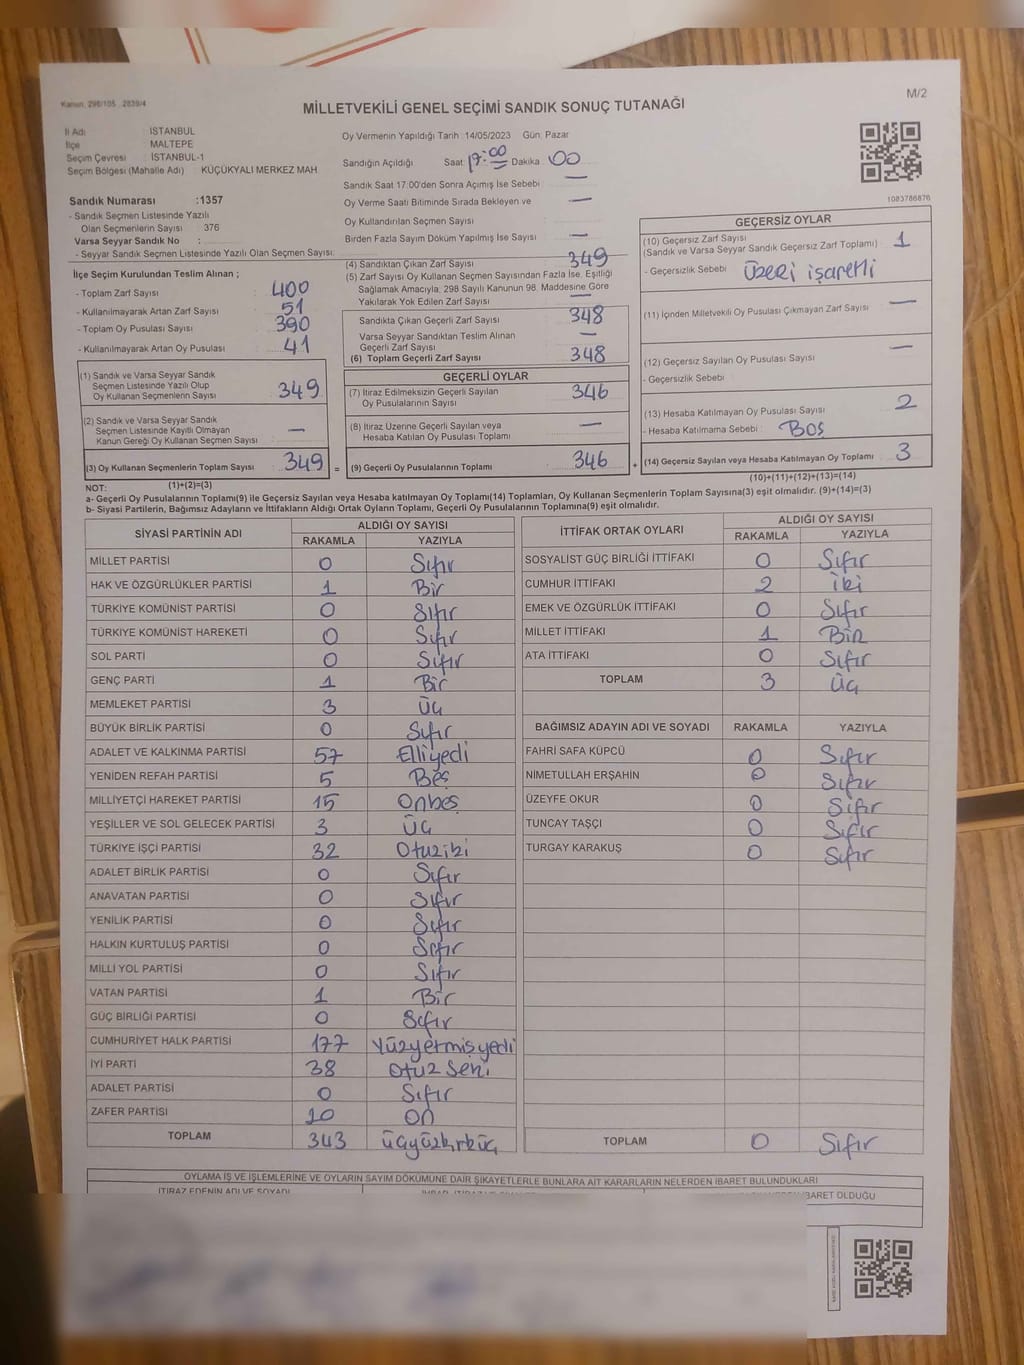 Kanun: 298/105 , 2839/4
M/2
MİLLETVEKİLİ GENEL SEÇİMİ SANDIK SONUÇ TUTANAĞI
İl Adı : İSTANBUL
İlçe : MALTEPE
Seçim Çevresi : İSTANBUL-1
Seçim Bölgesi (Mahalle Adı) KÜÇÜKYALI MERKEZ MAH.
Oy Vermenin Yapıldığı Tarih: 14/05/2023 Gün: Pazar
Sandığın Açıldığı Saat 17:00 Dakika: 00
Sandık Saat 17:00'den Sonra Açımış İse Sebebi —
Oy Verme Saati Bitiminde Sırada Bekleyen ve
Oy Kullandırılan Seçmen Sayısı —
Birden Fazla Sayım Döküm Yapılmış İse Sayısı —
1083786876
Sandık Numarası :1357
- Sandık Seçmen Listesinde Yazılı
Olan Seçmenlerin Sayısı : 376
Varsa Seyyar Sandık No :
- Seyyar Sandık Seçmen Listesinde Yazılı Olan Seçmen Sayısı:
İlçe Seçim Kurulundan Teslim Alınan ;
- Toplam Zarf Sayısı : 400
- Kullanılmayarak Artan Zarf Sayısı : 51
- Toplam Oy Pusulası Sayısı : 390
- Kullanılmayarak Artan Oy Pusulası : 41
(1) Sandık ve Varsa Seyyar Sandık
Seçmen Listesinde Yazılı Olup
Oy Kullanan Seçmenlerin Sayısı : 349
(2) Sandık ve Varsa Seyyar Sandık
Seçmen Listesinde Kayıtlı Olmayan
Kanun Gereği Oy Kullanan Seçmen Sayısı : —
(3) Oy Kullanan Seçmenlerin Toplam Sayısı : 349
(1)+(2)=(3)
(4) Sandıktan Çıkan Zarf Sayısı 349
(5) Zarf Sayısı Oy Kullanan Seçmen Sayısından Fazla İse, Eşitliği
Sağlamak Amacıyla, 298 Sayılı Kanunun 98. Maddesine Göre
Yakılarak Yok Edilen Zarf Sayısı —
Sandıkta Çıkan Geçerli Zarf Sayısı 348
Varsa Seyyar Sandıktan Teslim Alınan
Geçerli Zarf Sayısı —
(6) Toplam Geçerli Zarf Sayısı 348
GEÇERLİ OYLAR
(7) İtiraz Edilmeksizin Geçerli Sayılan
Oy Pusulalarının Sayısı 346
(8) İtiraz Üzerine Geçerli Sayılan veya
Hesaba Katılan Oy Pusulası Toplamı —
= (9) Geçerli Oy Pusulalarının Toplamı 346
GEÇERSİZ OYLAR
(10) Geçersiz Zarf Sayısı
(Sandık ve Varsa Seyyar Sandık Geçersiz Zarf Toplamı) 1
- Geçersizlik Sebebi : Üzeri işaretli
(11) İçinden Milletvekili Oy Pusulası Çıkmayan Zarf Sayısı —
(12) Geçersiz Sayılan Oy Pusulası Sayısı —
- Geçersizlik Sebebi :
(13) Hesaba Katılmayan Oy Pusulası Sayısı 2
- Hesaba Katılmama Sebebi : Boş
+ (14) Geçersiz Sayılan veya Hesaba Katılmayan Oy Toplamı 3
(10)+(11)+(12)+(13)=(14)
NOT:
a- Geçerli Oy Pusulalarının Toplamı(9) ile Geçersiz Sayılan veya Hesaba katılmayan Oy Toplamı(14) Toplamları, Oy Kullanan Seçmenlerin Toplam Sayısına(3) eşit olmalıdır. (9)+(14)=(3)
b- Siyasi Partilerin, Bağımsız Adayların ve İttifakların Aldığı Ortak Oyların Toplamı, Geçerli Oy Pusulalarının Toplamına(9) eşit olmalıdır.
SİYASİ PARTİNİN ADI ALDIĞI OY SAYISI
RAKAMLA YAZIYLA
MİLLET PARTİSİ 0 Sıfır
HAK VE ÖZGÜRLÜKLER PARTİSİ 1 Bir
TÜRKİYE KOMÜNİST PARTİSİ 0 Sıfır
TÜRKİYE KOMÜNİST HAREKETİ 0 Sıfır
SOL PARTİ 0 Sıfır
GENÇ PARTİ 1 Bir
MEMLEKET PARTİSİ 3 Üç
BÜYÜK BİRLİK PARTİSİ 0 Sıfır
ADALET VE KALKINMA PARTİSİ 57 Elliyedi
YENİDEN REFAH PARTİSİ 5 Beş
MİLLİYETÇİ HAREKET PARTİSİ 15 Onbeş
YEŞİLLER VE SOL GELECEK PARTİSİ 3 Üç
TÜRKİYE İŞÇİ PARTİSİ 32 Otuziki
ADALET BİRLİK PARTİSİ 0 Sıfır
ANAVATAN PARTİSİ 0 Sıfır
YENİLİK PARTİSİ 0 Sıfır
HALKIN KURTULUŞ PARTİSİ 0 Sıfır
MİLLİ YOL PARTİSİ 0 Sıfır
VATAN PARTİSİ 1 Bir
GÜÇ BİRLİĞİ PARTİSİ 0 Sıfır
CUMHURİYET HALK PARTİSİ 177 Yüzyetmişyedi
İYİ PARTİ 38 Otuz Seki
ADALET PARTİSİ 0 Sıfır
ZAFER PARTİSİ 10 On
TOPLAM 343 Üçyüzkırküç
İTTİFAK ORTAK OYLARI ALDIĞI OY SAYISI
RAKAMLA YAZIYLA
SOSYALİST GÜÇ BİRLİĞİ İTTİFAKI 0 Sıfır
CUMHUR İTTİFAKI 2 İki
EMEK VE ÖZGÜRLÜK İTTİFAKI 0 Sıfır
MİLLET İTTİFAKI 1 Bir
ATA İTTİFAKI 0 Sıfır
TOPLAM 3 Üç
BAĞIMSIZ ADAYIN ADI VE SOYADI RAKAMLA YAZIYLA
FAHRİ SAFA KÜPCÜ 0 Sıfır
NİMETULLAH ERŞAHİN 0 Sıfır
ÜZEYFE OKUR 0 Sıfır
TUNCAY TAŞÇI 0 Sıfır
TURGAY KARAKUŞ 0 Sıfır
TOPLAM 0 Sıfır
OYLAMA İŞ VE İŞLEMLERİNE VE OYLARIN SAYIM DÖKÜMÜNE DAİR ŞİKAYETLERLE BUNLARA AİT KARARLARIN NELERDEN İBARET BULUNDUKLARI
İTİRAZ EDENİN ADI VE SOYADI
İBARET OLDUĞU